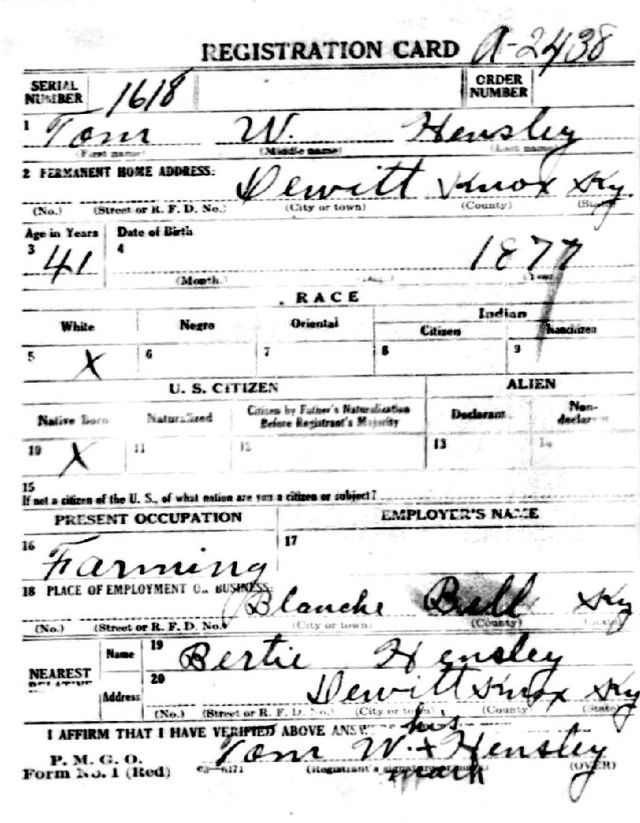 REGISTRATION CARD A-2438
SERIAL NUMBER 1618 ORDER NUMBER
1 Tom W. Hensley
(First name) (Middle name) (Last name)
2 PERMANENT HOME ADDRESS: Dewitt Knox Ky
(No.) (Street or R. F. D. No.) (City or town) (County) (State)
Age in Years Date of Birth
3 41 4 1877
(Month) (Day) (Year)
RACE
White Negro Oriental Indian
Citizen Noncitizen
5 X 6 7 8 9
U. S. CITIZEN ALIEN
Native Born Naturalized Citizen by Father's Naturalization Before Registrant's Majority Declarant Non-declarant
10 X 11 12 13 14
15
If not a citizen of the U. S., of what nation are you a citizen or subject?
PRESENT OCCUPATION EMPLOYER'S NAME
16 Farming 17
18 PLACE OF EMPLOYMENT OR BUSINESS:
Blanche Bell Ky
(No.) (Street or R. F. D. No.) (City or town) (County) (State)
NEAREST RELATIVE Name 19 Bertie Hensley
Address 20 Dewitt Knox Ky
(No.) (Street or R. F. D. No.) (City or town) (County) (State)
I AFFIRM THAT I HAVE VERIFIED ABOVE ANSWERS his
P. M. G. O. Tom W. x Hensley
Form No. 1 (Red) (Registrant's signature or mark) mark (OVER)